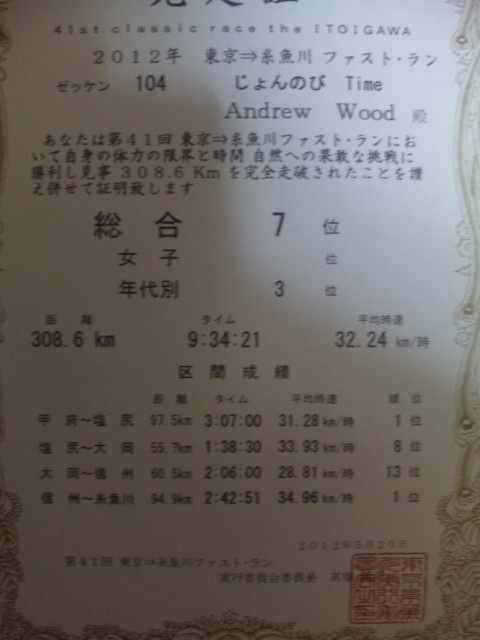 41st.classic race the ITOIGAWA
2012年 東京⇒糸魚川 ファスト・ラン
ゼッケン 104 じょんのび Time
Andrew Wood 殿
あなたは第41回 東京⇒糸魚川ファスト・ランにお
いて自身の体力の限界と時間 自然への果敢な挑戦に
勝利し見事 308.6 Km を完全走破されたことを讃
え併せて証明致します
総合 7 位
女子 位
年代別 3 位
距離 タイム 平均時速
308.6 km 9:34:21 32.24 km/時
区間成績
距離 タイム 平均時速 順位
甲府～塩尻 97.5km 3:07:00 31.28 km/時 1 位
塩尻～大岡 55.7km 1:38:30 33.93 km/時 8 位
大岡～信州 60.5km 2:06:00 28.81 km/時 13 位
信州～糸魚川 94.9km 2:42:51 34.96 km/時 1 位
2012年5月20日
第41回 東京⇒糸魚川ファスト・ラン
実行委員会委員長 高橋